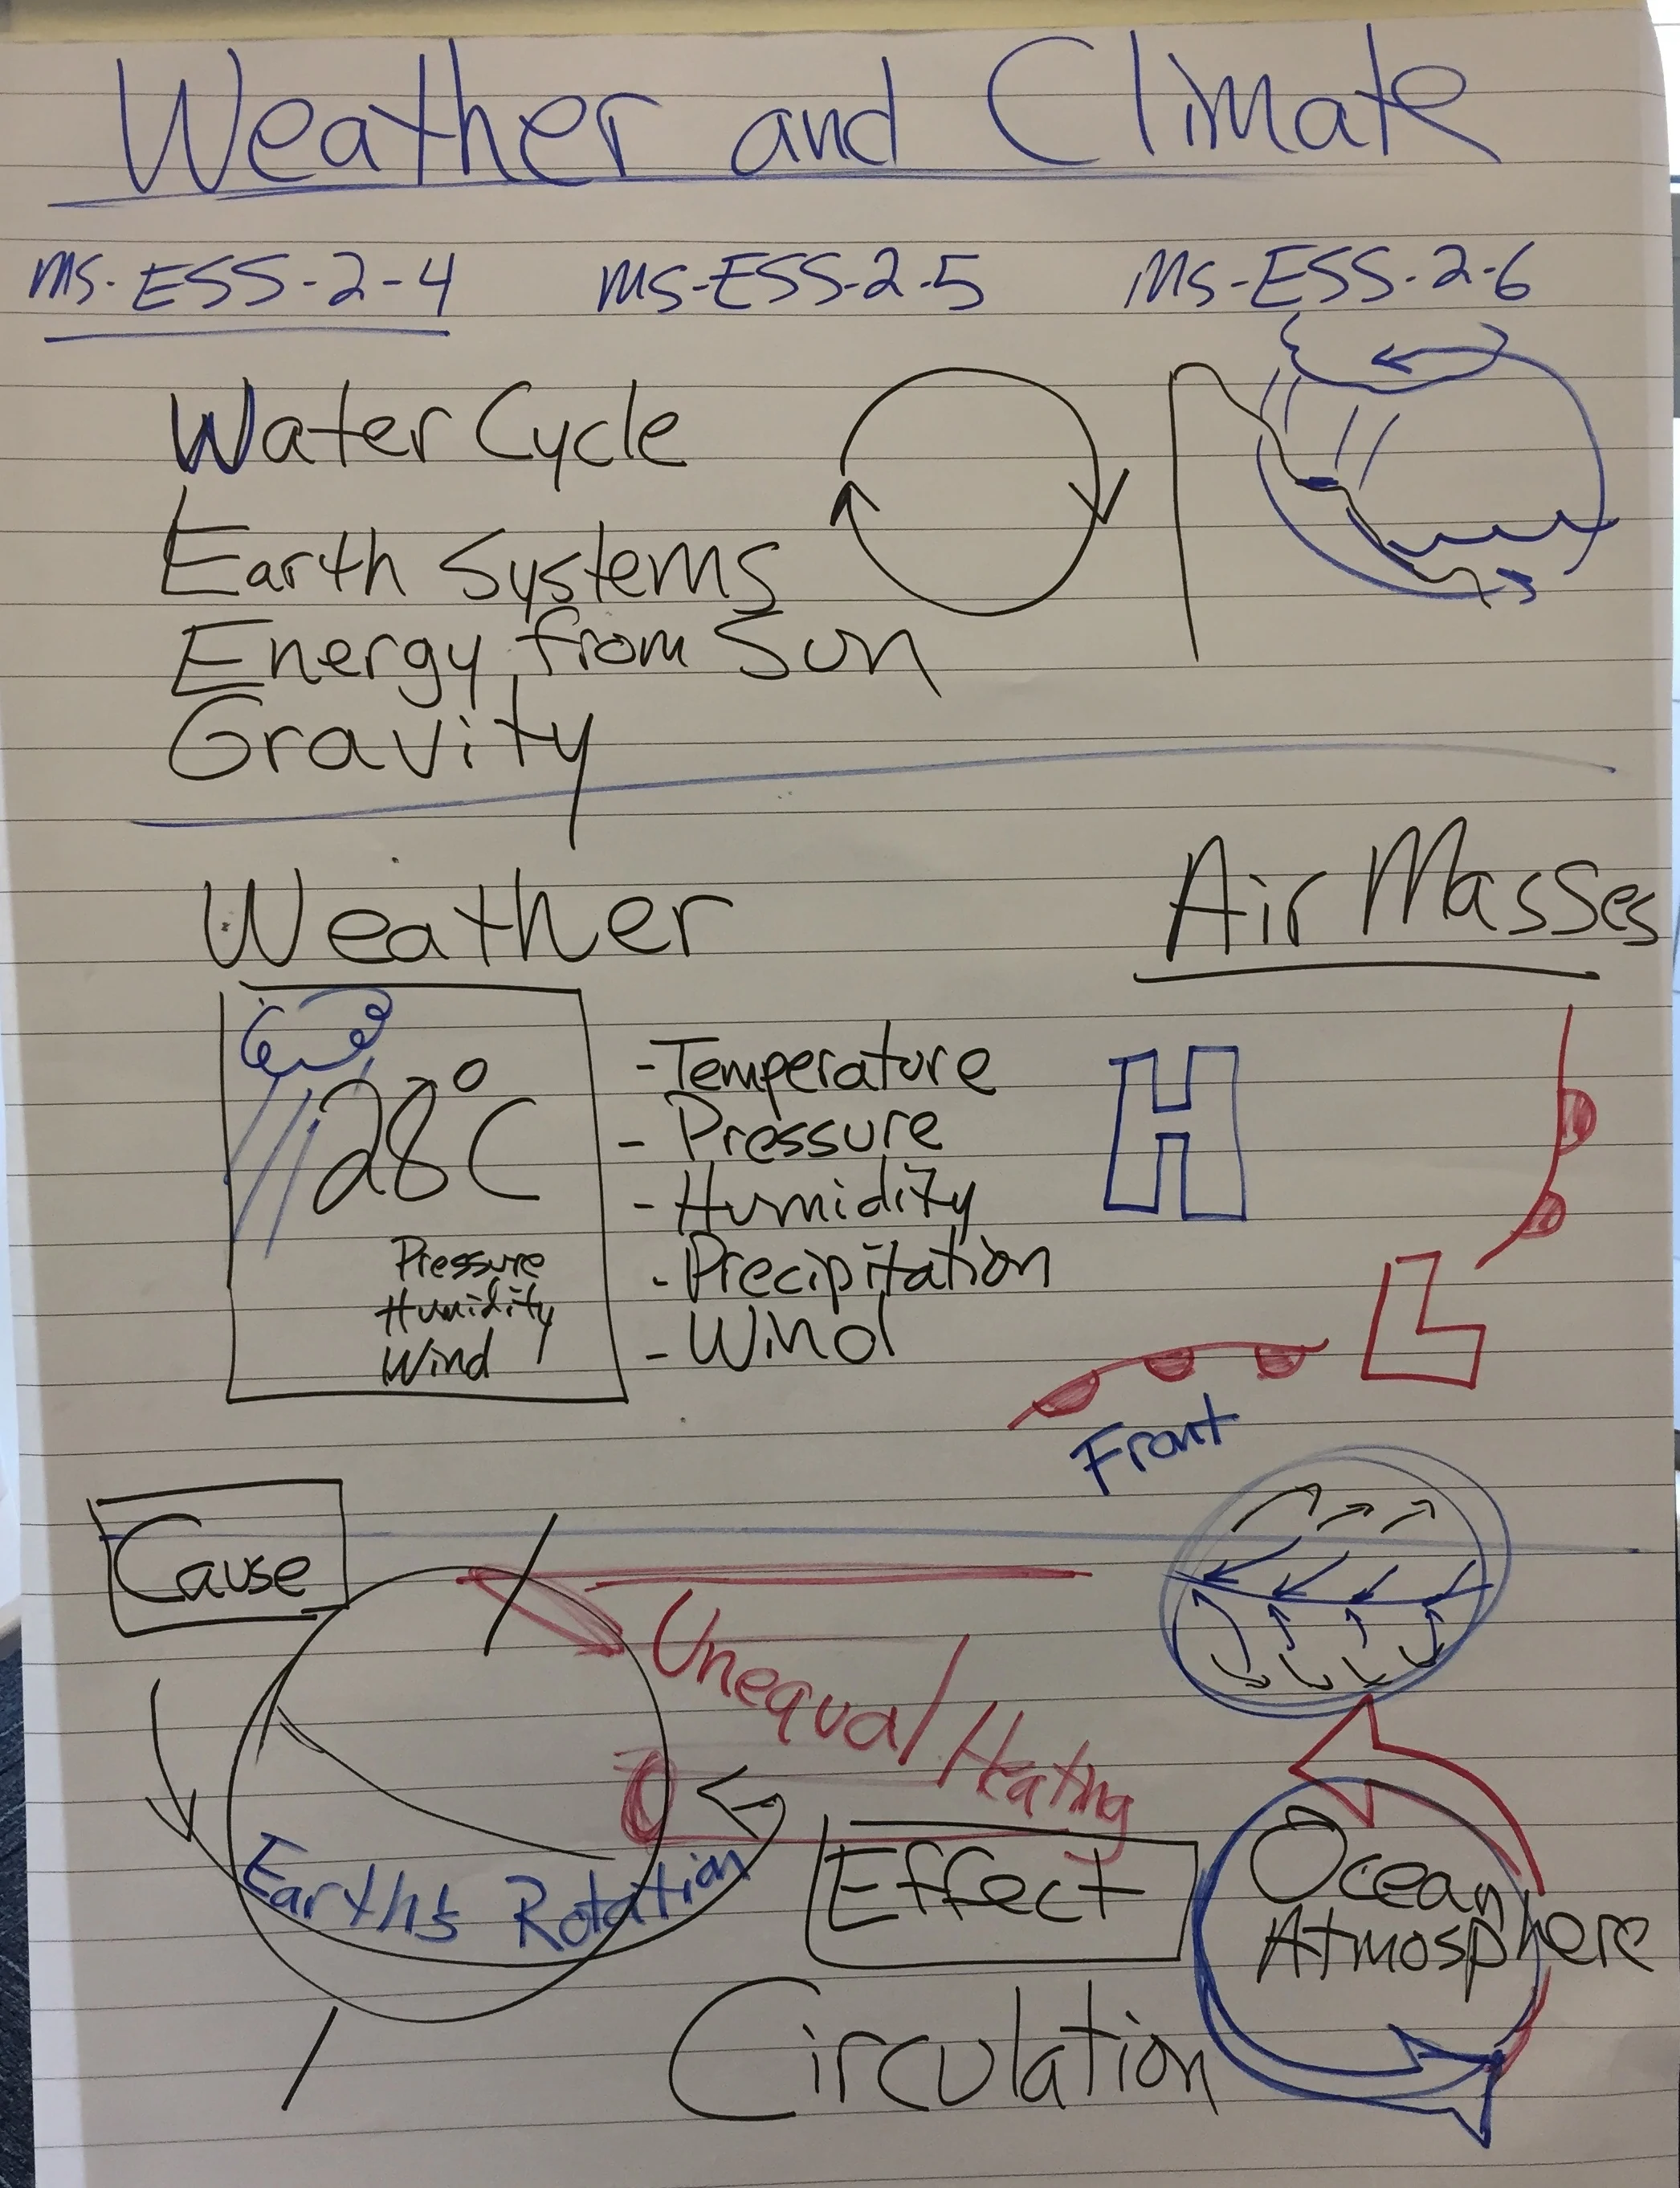 Weather and Climate
MS-ESS-2-4 MS-ESS-2-5 MS-ESS-2-6
Water Cycle
Earth Systems
Energy from Sun
Gravity
Weather
28°C
Pressure
Humidity
Wind
- Temperature
- Pressure
- Humidity
- Precipitation
- Wind
Air Masses
H
L
Front
Cause
Unequal Heating
Earth's Rotation
Effect
Circulation
Ocean
Atmosphere